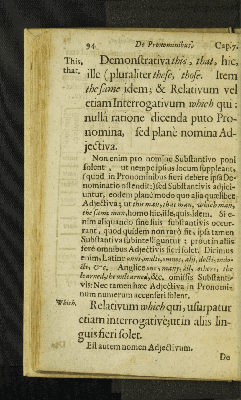 94 De Pronominibus. Cap.7.
This, that. Demonstrativa this, that, hic,
ille (pluraliter these, those. Item
the same idem; & Relativum vel
etiam Interrogativum which qui:
nullâ ratione dicenda puto Pro-
nomina, sed planè nomina Ad-
jectiva.
Non enim pro nomine Substantivo poni
solent, ut nempe ipsius locum suppleant,
(quod in Pronominibus fieri debere ipsa De-
nominatio ostendit;) sed Substantivis adjici-
untur, eodem planè modo quo alia quælibet
Adjectiva; ut the man, that man, which man,
the same man, homo hic, ille, quis, idem. Si e-
nim aliquando sine suis substantivis occur-
rant, quod quidem non rarò fit, ipsa tamen
Substantiva subintelliguntur; prout in aliis
ferè omnibus Adjectivis fieri solet. Dicimus
enim, Latinè unus, multi, omnes, alii, docti, indo-
cti, &c. Anglicè one, many, all, others, the
learned, the unlearned, &c. omissis Substanti-
vis: Nec tamen hæc Adjectiva in Pronomi-
num numerum accenseri solent.
Which. Relativum which qui, usurpatur
etiam interrogativè; ut in aliis lin-
guis fieri solet.
Est autem nomen Adjectivum.
De